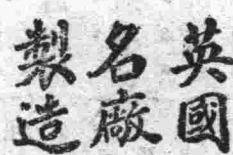 英國
名廠
製造